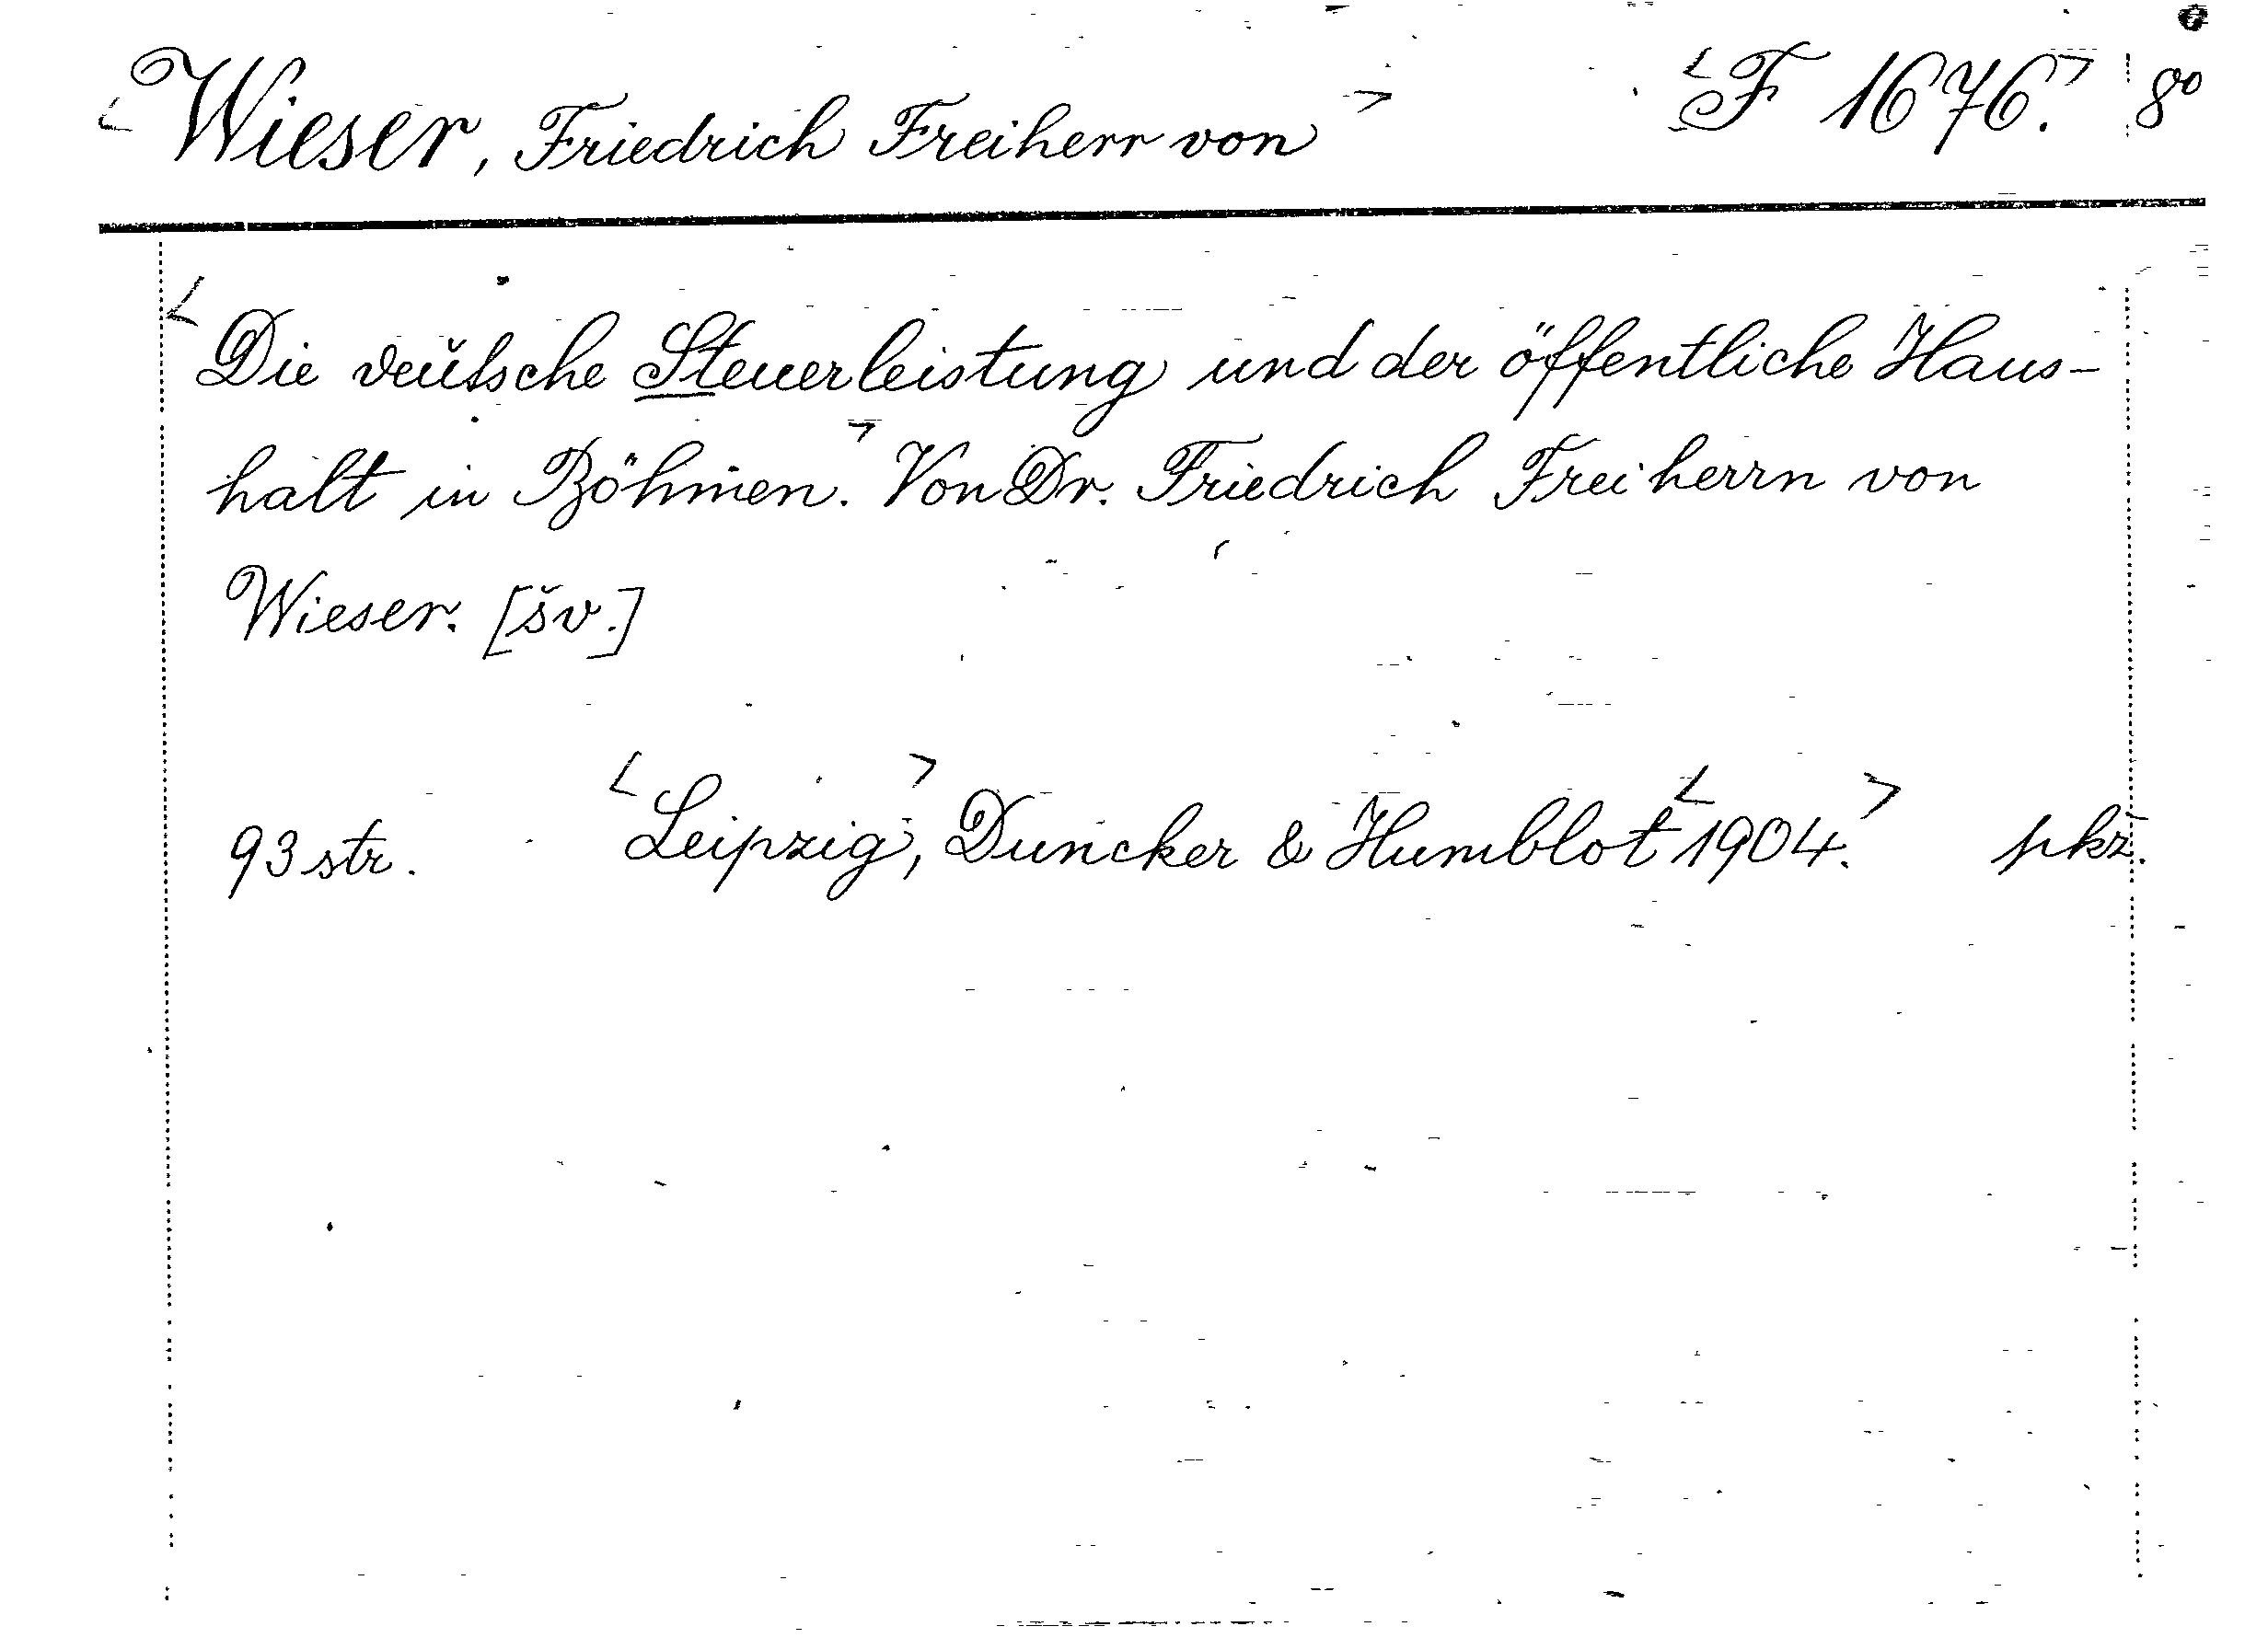 <Wieser, Friedrich Freiherr von> <F 1676.> 8°
<Die deutsche Steuerleistung und der öffentliche Haus-
halt in Böhmen.> Von Dr. Friedrich Freiherrn von
Wieser. [šv.]
93 str. <Leipzig>, Duncker & Humblot <1904.> pkz.